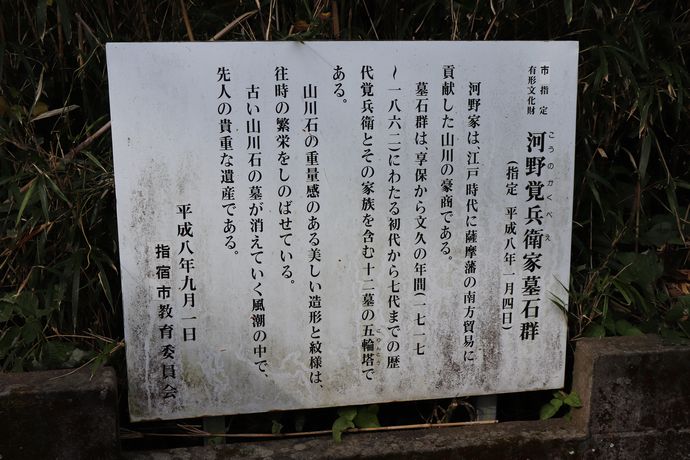 市指定
有形文化財
河野覚兵衛家墓石群
こうのかくべえ
(指定 平成八年一月四日)
河野家は、江戸時代に薩摩藩の南方貿易に
貢献した山川の豪商である。
墓石群は、享保から文久の年間(一七一七
~一八六二)にわたる初代から七代までの歴
代覚兵衛とその家族を含む十二墓の五輪塔で
ある。
山川石の重量感のある美しい造形と紋様は、
往時の繁栄をしのばせている。
古い山川石の墓が消えていく風潮の中で、
先人の貴重な遺産である。
平成八年九月一日
指宿市教育委員会